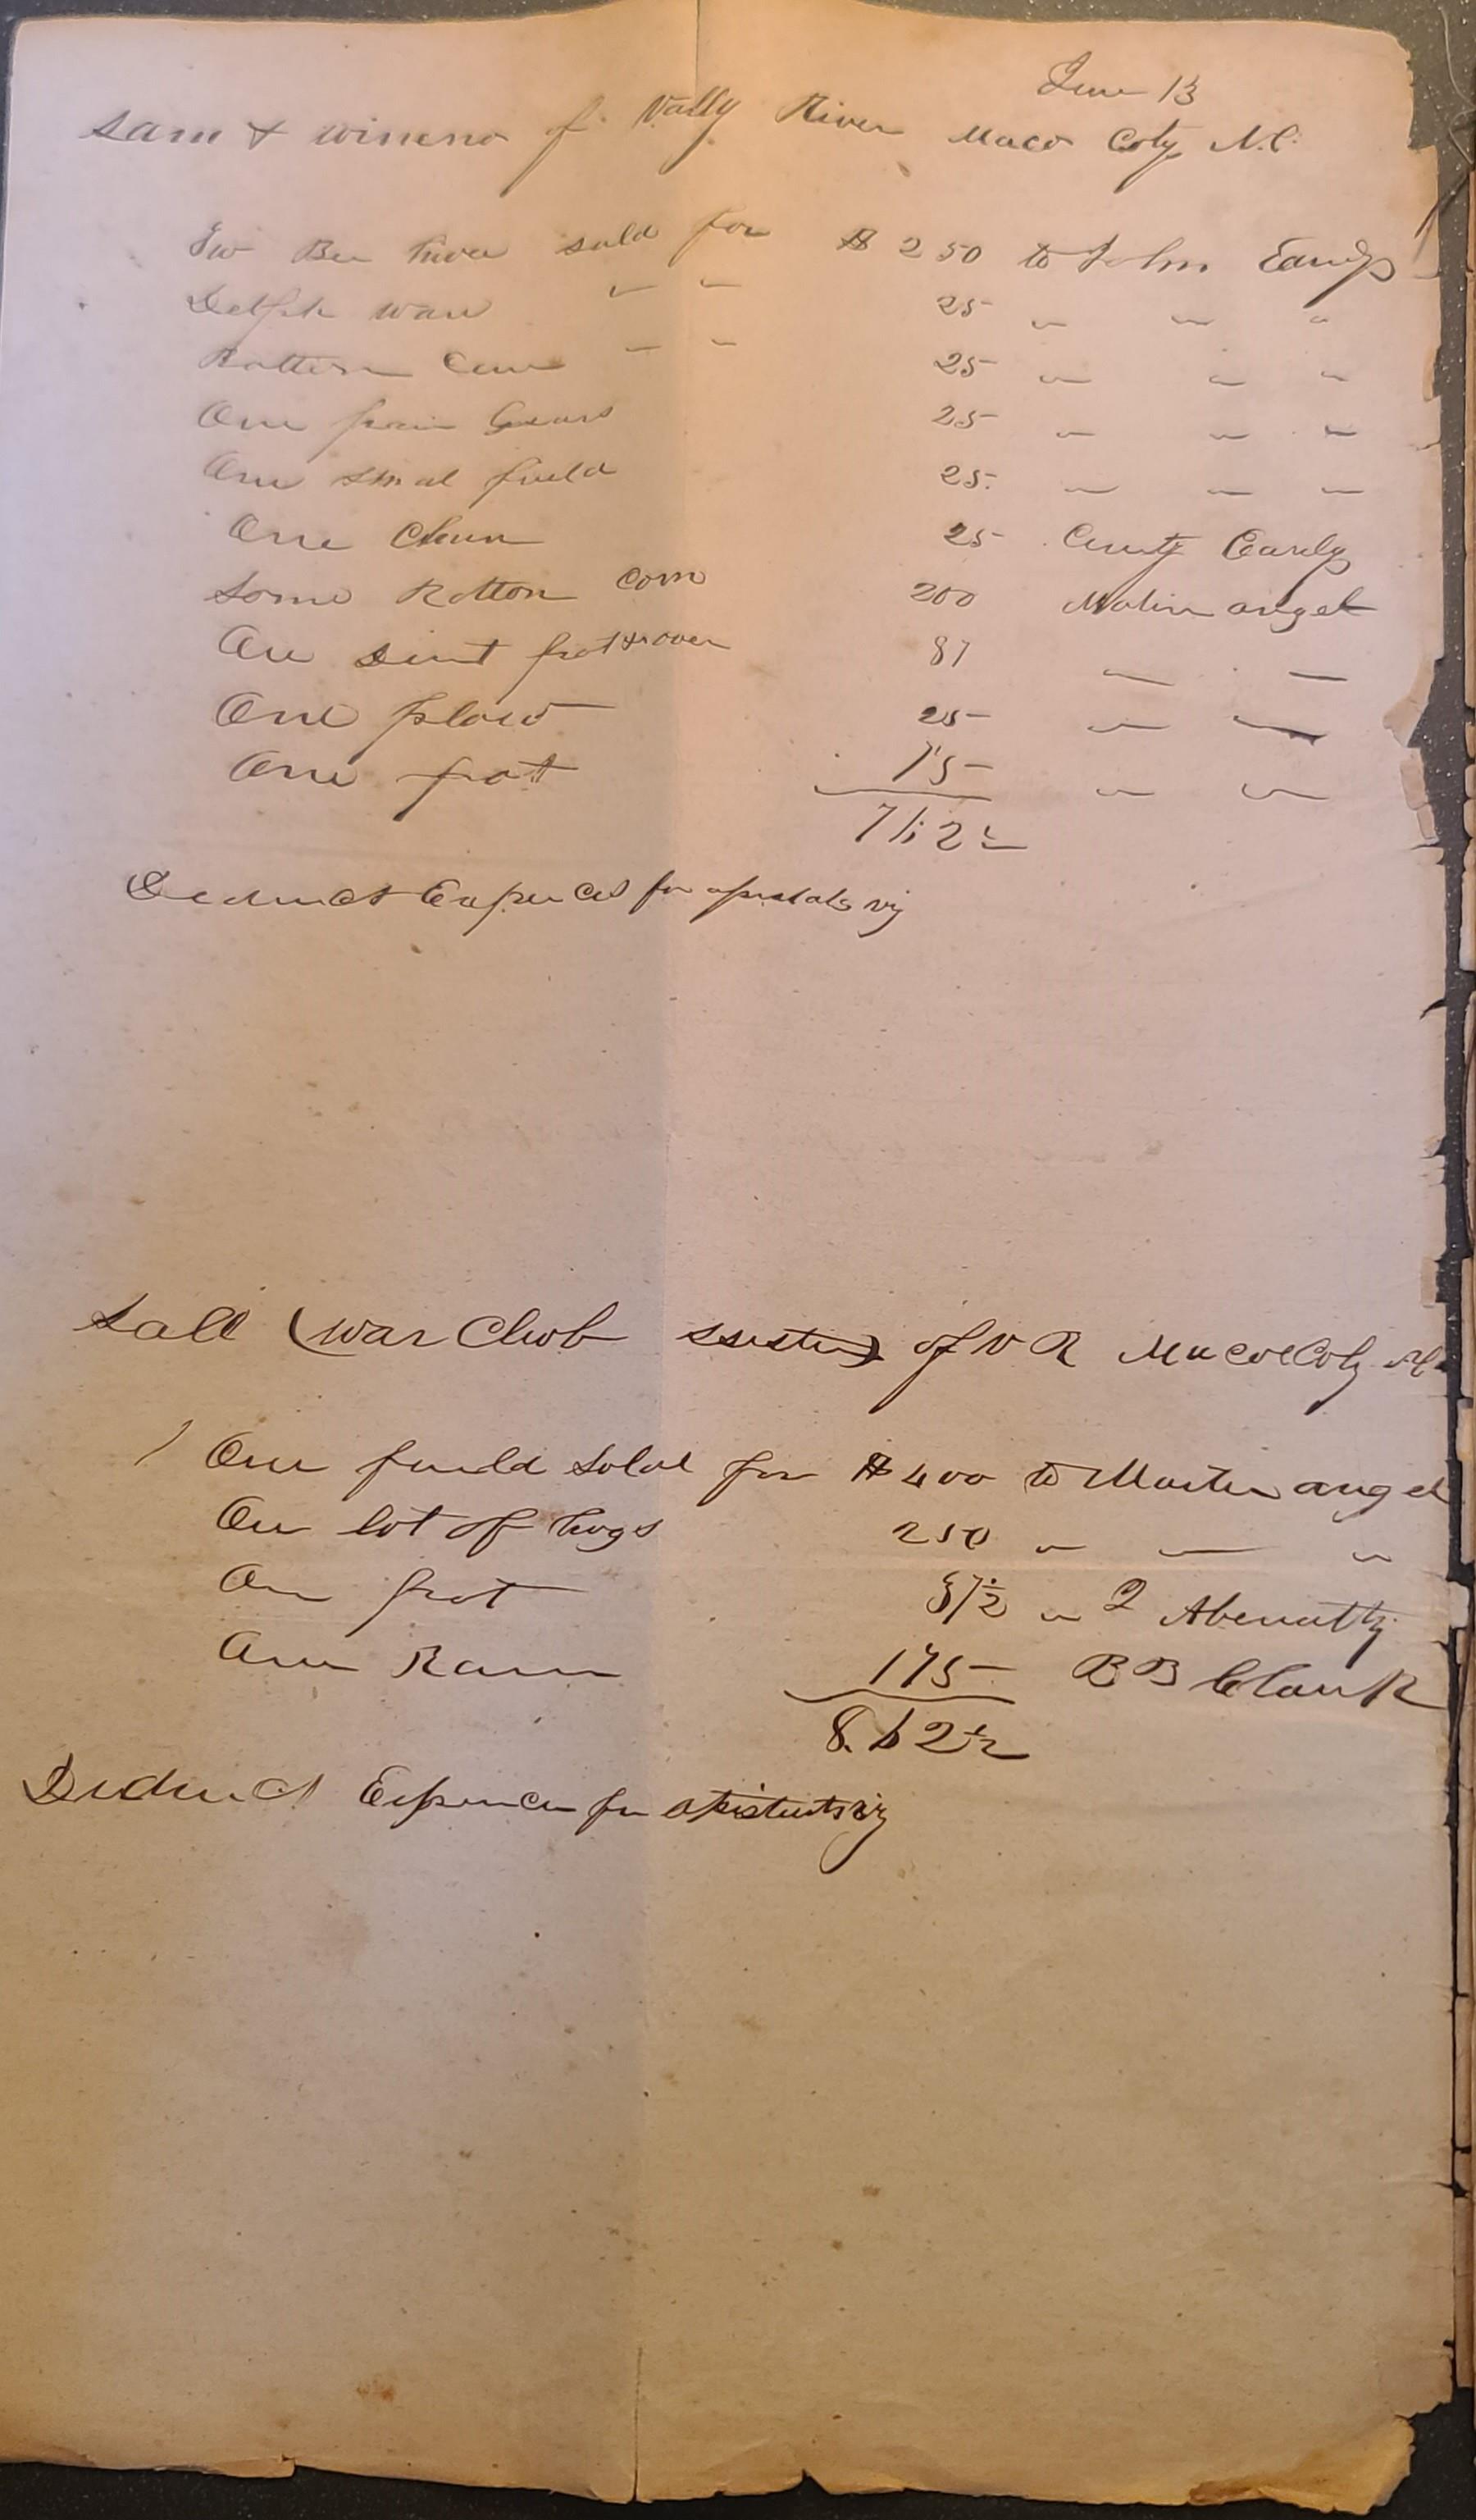 June 13
Sam & winena of Vally River Maco Coty N.C.
Tw Bee hives sold for $ 2 50 to John Earlp
Delph ware " " 25 " " "
Rotten Corn " " 25 " " "
One pair Gears 25 " " "
One smal field 25 " " "
One Churn 25 Earlp
Some Rotton corn 200 angel
One pot & oven 87 " "
One plow 25 " "
One pot 75 " "
7 62½
Deduct Expences for
Sall (war Club sister) of V R Macon Coty N
1 One field Sold for $ 4 00 to Martin angel
One lot of hogs 250 " " "
One pot 37½ " Abernatty
One Ram 175 B B Clark
8.62½
Deduct Expences for